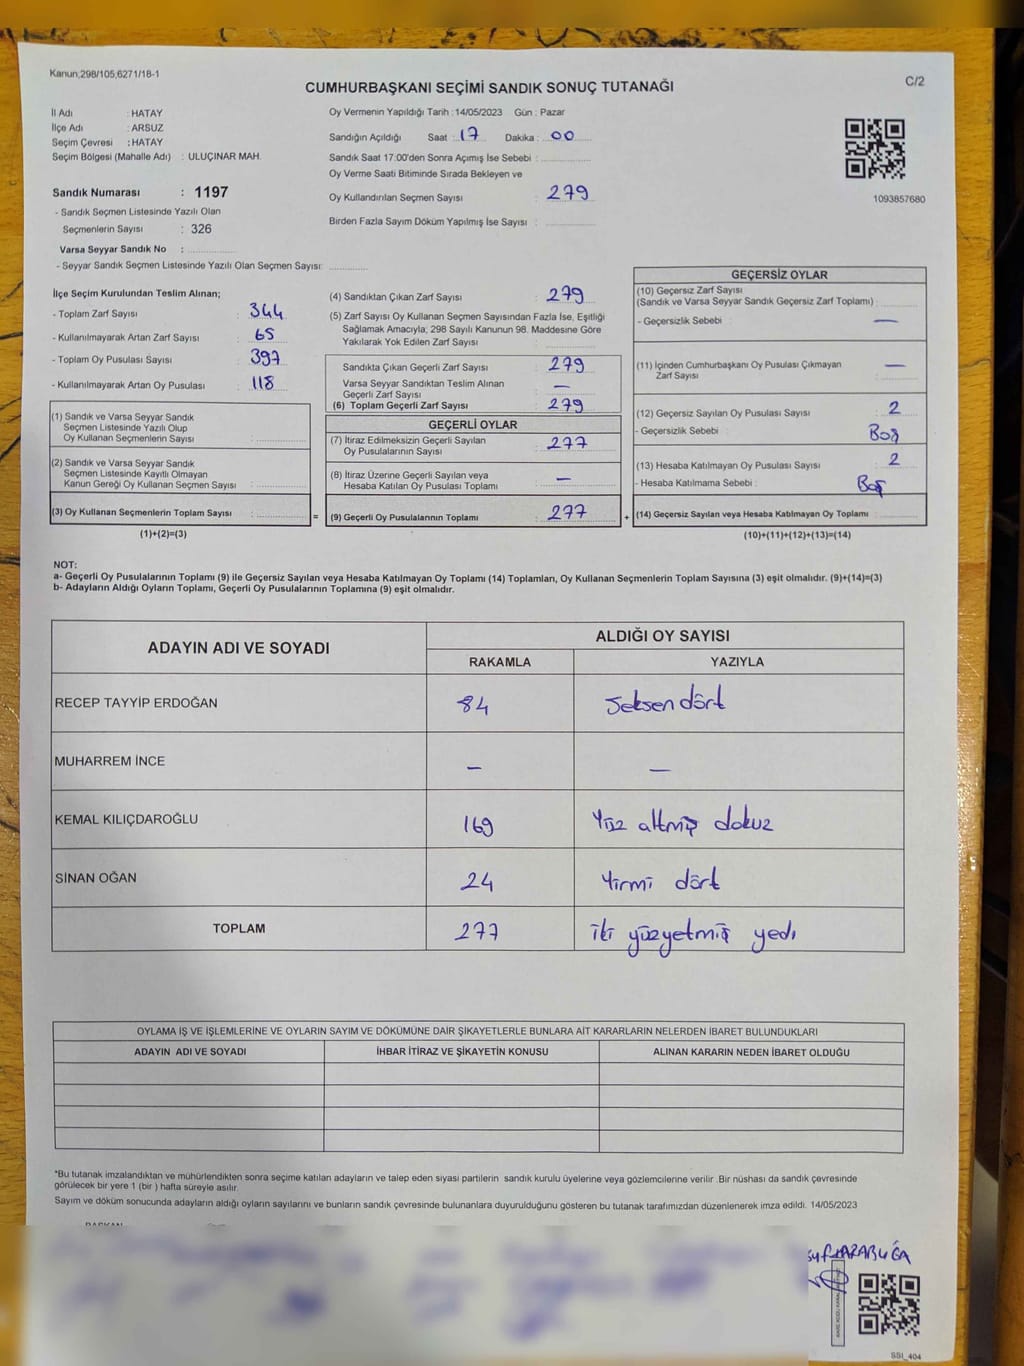 Kanun;298/105,6271/18-1
C/2
CUMHURBAŞKANI SEÇİMİ SANDIK SONUÇ TUTANAĞI
İl Adı : HATAY
İlçe Adı : ARSUZ
Seçim Çevresi : HATAY
Seçim Bölgesi (Mahalle Adı) : ULUÇINAR MAH.
Oy Vermenin Yapıldığı Tarih : 14/05/2023 Gün : Pazar
Sandığın Açıldığı Saat : 17 Dakika : 00
Sandık Saat 17:00'den Sonra Açımış İse Sebebi :
Oy Verme Saati Bitiminde Sırada Bekleyen ve
Oy Kullandırılan Seçmen Sayısı : 279
Birden Fazla Sayım Döküm Yapılmış İse Sayısı :
1093857680
Sandık Numarası : 1197
- Sandık Seçmen Listesinde Yazılı Olan
Seçmenlerin Sayısı : 326
Varsa Seyyar Sandık No :
- Seyyar Sandık Seçmen Listesinde Yazılı Olan Seçmen Sayısı:
İlçe Seçim Kurulundan Teslim Alınan;
- Toplam Zarf Sayısı : 344
- Kullanılmayarak Artan Zarf Sayısı : 65
- Toplam Oy Pusulası Sayısı : 397
- Kullanılmayarak Artan Oy Pusulası : 118
(1) Sandık ve Varsa Seyyar Sandık
Seçmen Listesinde Yazılı Olup
Oy Kullanan Seçmenlerin Sayısı :
(2) Sandık ve Varsa Seyyar Sandık
Seçmen Listesinde Kayıtlı Olmayan
Kanun Gereği Oy Kullanan Seçmen Sayısı :
(3) Oy Kullanan Seçmenlerin Toplam Sayısı :
(1)+(2)=(3)
=
(4) Sandıktan Çıkan Zarf Sayısı : 279
(5) Zarf Sayısı Oy Kullanan Seçmen Sayısından Fazla İse, Eşitliği
Sağlamak Amacıyla; 298 Sayılı Kanunun 98. Maddesine Göre
Yakılarak Yok Edilen Zarf Sayısı :
Sandıkta Çıkan Geçerli Zarf Sayısı : 279
Varsa Seyyar Sandıktan Teslim Alınan
Geçerli Zarf Sayısı : —
(6) Toplam Geçerli Zarf Sayısı : 279
GEÇERLİ OYLAR
(7) İtiraz Edilmeksizin Geçerli Sayılan
Oy Pusulalarının Sayısı : 277
(8) İtiraz Üzerine Geçerli Sayılan veya
Hesaba Katılan Oy Pusulası Toplamı : —
(9) Geçerli Oy Pusulalarının Toplamı : 277
+
GEÇERSİZ OYLAR
(10) Geçersiz Zarf Sayısı
(Sandık ve Varsa Seyyar Sandık Geçersiz Zarf Toplamı) :
- Geçersizlik Sebebi : —
(11) İçinden Cumhurbaşkanı Oy Pusulası Çıkmayan
Zarf Sayısı : —
(12) Geçersiz Sayılan Oy Pusulası Sayısı : 2
- Geçersizlik Sebebi : Boş
(13) Hesaba Katılmayan Oy Pusulası Sayısı : 2
- Hesaba Katılmama Sebebi : Boş
(14) Geçersiz Sayılan veya Hesaba Katılmayan Oy Toplamı :
(10)+(11)+(12)+(13)=(14)
NOT:
a- Geçerli Oy Pusulalarının Toplamı (9) ile Geçersiz Sayılan veya Hesaba Katılmayan Oy Toplamı (14) Toplamları, Oy Kullanan Seçmenlerin Toplam Sayısına (3) eşit olmalıdır. (9)+(14)=(3)
b- Adayların Aldığı Oyların Toplamı, Geçerli Oy Pusulalarının Toplamına (9) eşit olmalıdır.
ADAYIN ADI VE SOYADI
ALDIĞI OY SAYISI
RAKAMLA YAZIYLA
RECEP TAYYİP ERDOĞAN 84 Seksen dört
MUHARREM İNCE — —
KEMAL KILIÇDAROĞLU 169 Yüz altmış dokuz
SİNAN OĞAN 24 Yirmi dört
TOPLAM 277 iki yüzyetmiş yedi
OYLAMA İŞ VE İŞLEMLERİNE VE OYLARIN SAYIM VE DÖKÜMÜNE DAİR ŞİKAYETLERLE BUNLARA AİT KARARLARIN NELERDEN İBARET BULUNDUKLARI
ADAYIN ADI VE SOYADI İHBAR İTİRAZ VE ŞİKAYETİN KONUSU ALINAN KARARIN NEDEN İBARET OLDUĞU
*Bu tutanak imzalandıktan ve mühürlendikten sonra seçime katılan adayların ve talep eden siyasi partilerin sandık kurulu üyelerine veya gözlemcilerine verilir .Bir nüshası da sandık çevresinde
görülecek bir yere 1 (bir ) hafta süreyle asılır.
Sayım ve döküm sonucunda adayların aldığı oyların sayılarını ve bunların sandık çevresinde bulunanlara duyurulduğunu gösteren bu tutanak tarafımızdan düzenlenerek imza edildi. 14/05/2023
BAŞKAN
KARABUĞA
SSI_404